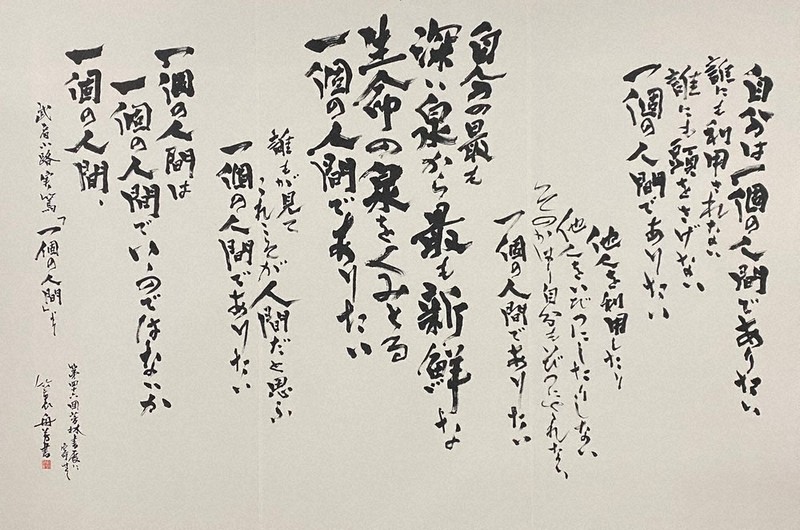 自分は一個の人間でありたい
誰にも利用されない
誰にも頭をさげない
一個の人間でありたい
他人を利用したり
他人をいびつにしたりしない
そのかはり自分もいびつにされない
一個の人間でありたい
自分の最も
深い泉から最も新鮮な
生命の泉をくみとる
一個の人間でありたい
誰もが見て
これこそが人間だと思ふ
一個の人間でありたい
一個の人間は
一個の人間でいゝのではないか
一個の人間、
武者小路実篤「一個の人間」より
第四十六回
書展に
書